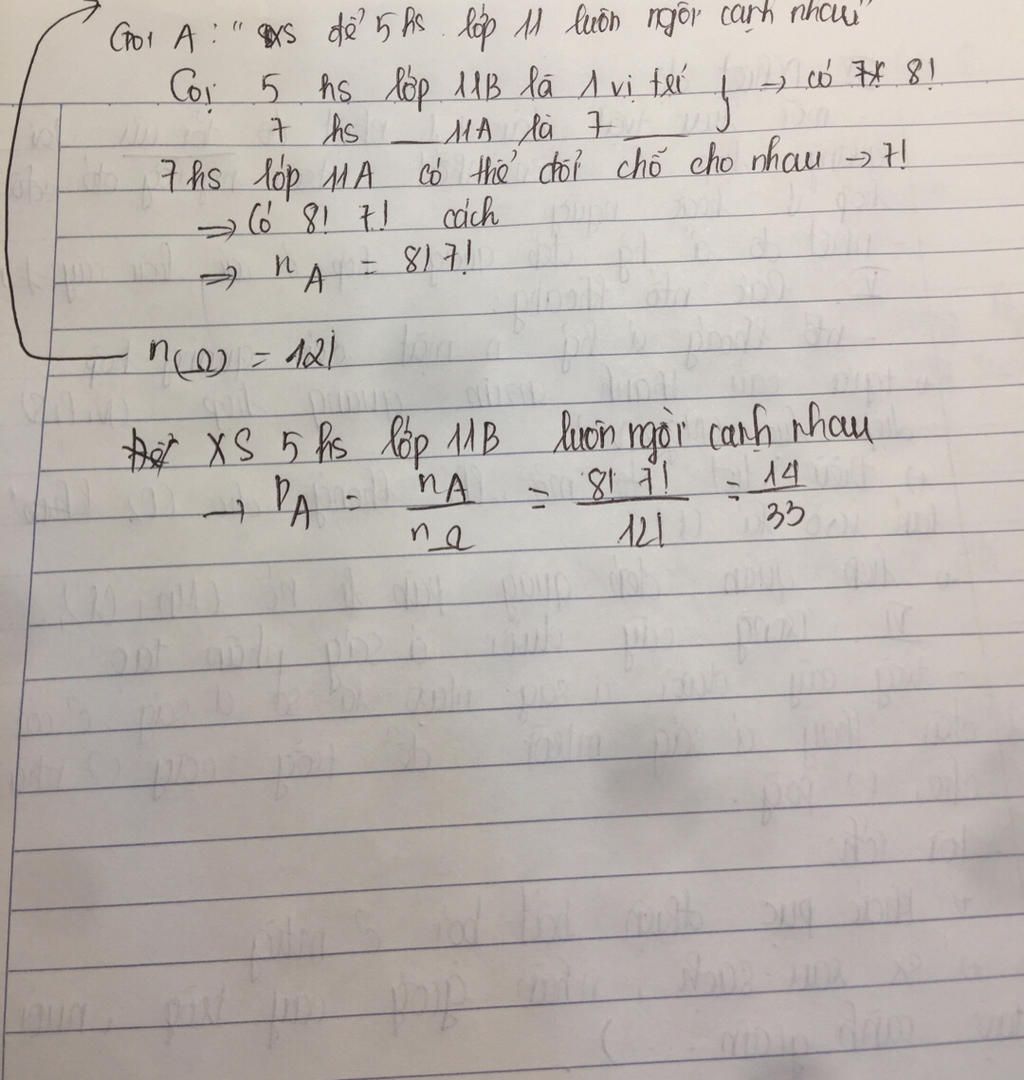 Gọi A : " xs để 5 hs lớp 11 luôn ngồi cạnh nhau"
Coi 5 hs lớp 11B là 1 vị trí } → có 8!
7 hs __ 11A là 7 __
7 hs lớp 11A có thể đổi chỗ cho nhau → 7!
⇒ Có 8! 7! cách
⇒ n A = 8! 7!
n(Ω) = 12!
XS 5 hs lớp 11B luôn ngồi cạnh nhau
→ P A = n A / n Ω = 8! 7! / 12! = 14 / 33